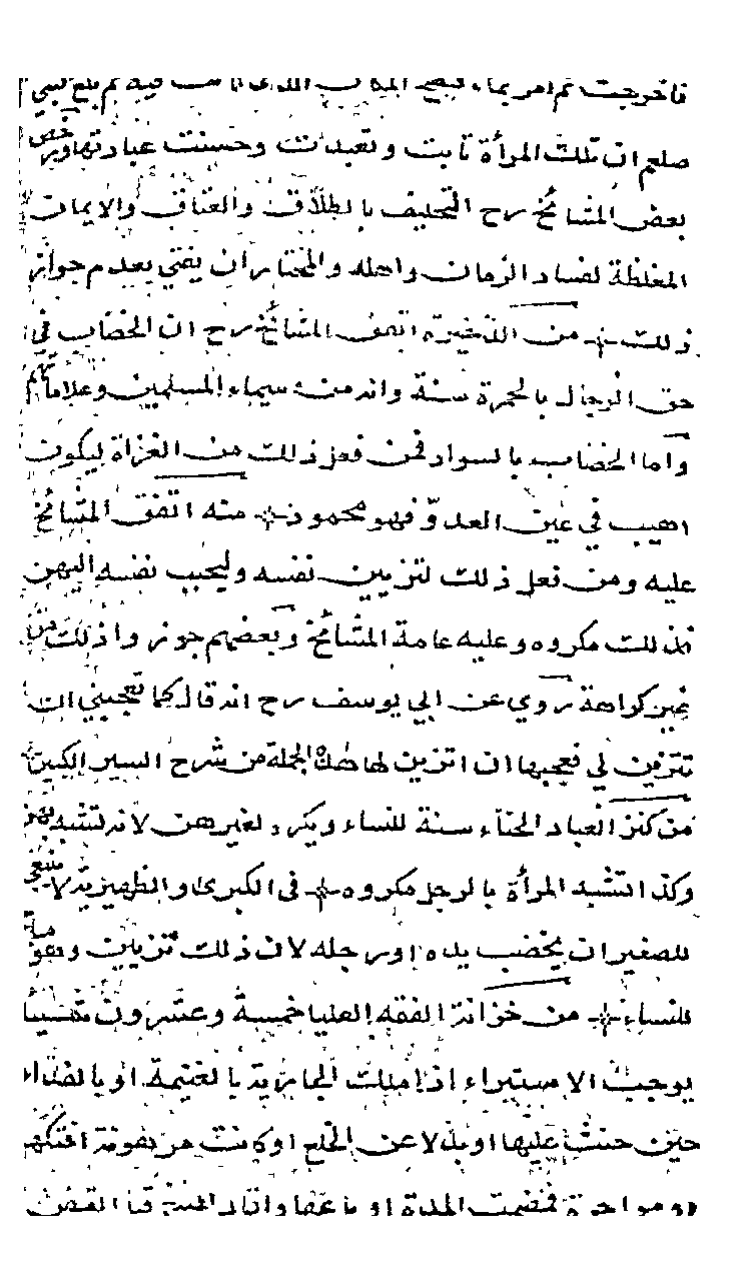 فاخرجت ثم امر بماء فيه ثم بلغ النبي
صلعم ان تلك المرأة تابت وتعبدت وحسنت عبادتها ورخص
بعض المشائخ رح التحليف بالطلاق والعتاق والايمان
المغلظة لفساد الزمان واهله والمختار ان يفتى بعدم جواز
ذلك من الذخيرة اتفق المشائخ رح ان الخضاب في
حق الرجال بالحمرة سنة وانه من سيماء المسلمين وعلاماتهم
واما الخضاب بالسواد فمن فعل ذلك من الغزاة ليكون
اهيب في عين العدو فهو محمود منه اتفق المشائخ
عليه ومن فعل ذلك لتزيين نفسه وليحبب نفسه اليهن
فذلك مكروه وعليه عامة المشائخ وبعضهم جوز واذلك من
غير كراهة روي عن ابي يوسف رح انه قال كما تعجبني ان
تتزين لي فيعجبها ان اتزين لها هذه الجملة من شرح السير الكبير
من كنز العباد الحناء سنة للنساء ويكره لغيرهن لانه تشبه بهن
وكذا تشبه المرأة بالرجل مكروه في الكبرى والظهيرية لا ينبغي
للصغير ان يخضب يده او رجله لان ذلك تزيين وهو مباح
للنساء من خزانة الفقه العليا خمسة وعشرون
يوجب الاستبراء اذا ملك الجارية بالغنيمة او بالفداء
حين او بدلا عن الخلع او كانت مرهونة افتكها
او مواجرة فمضت المدة او باعها القبض